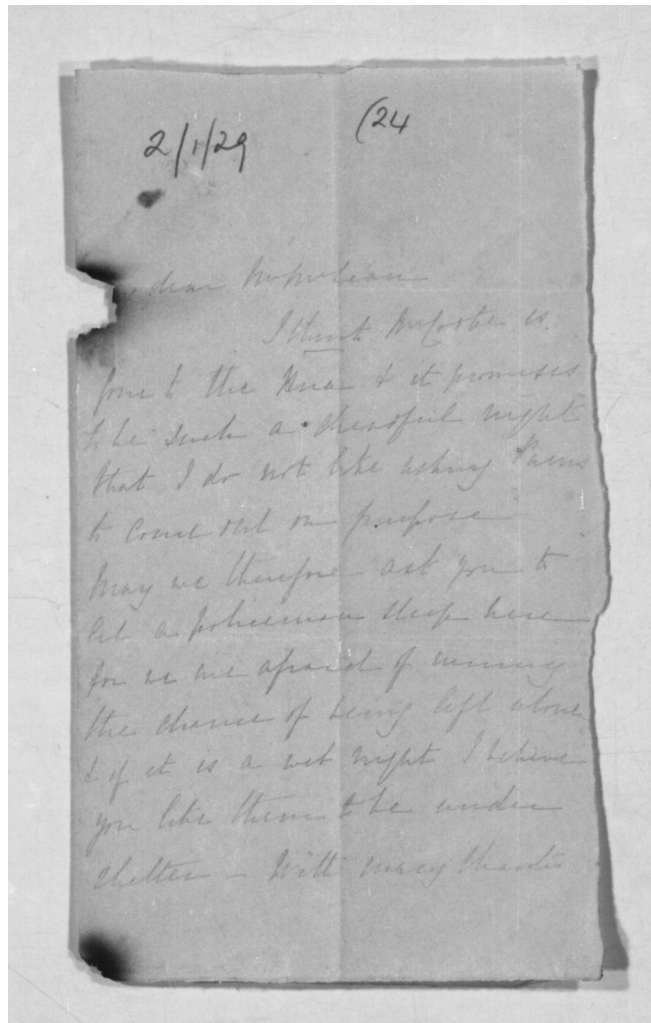 2/1/29 (24
dear McLean
I think is
gone to the & it promises
to be such a dreadful night
that I do not like asking
to come out on purpose
May we therefore ask you to
let a policeman sleep here
for we are afraid of running
the chance of being left alone
& if it is a wet night I believe
you like them to be under
shelter — With many thanks